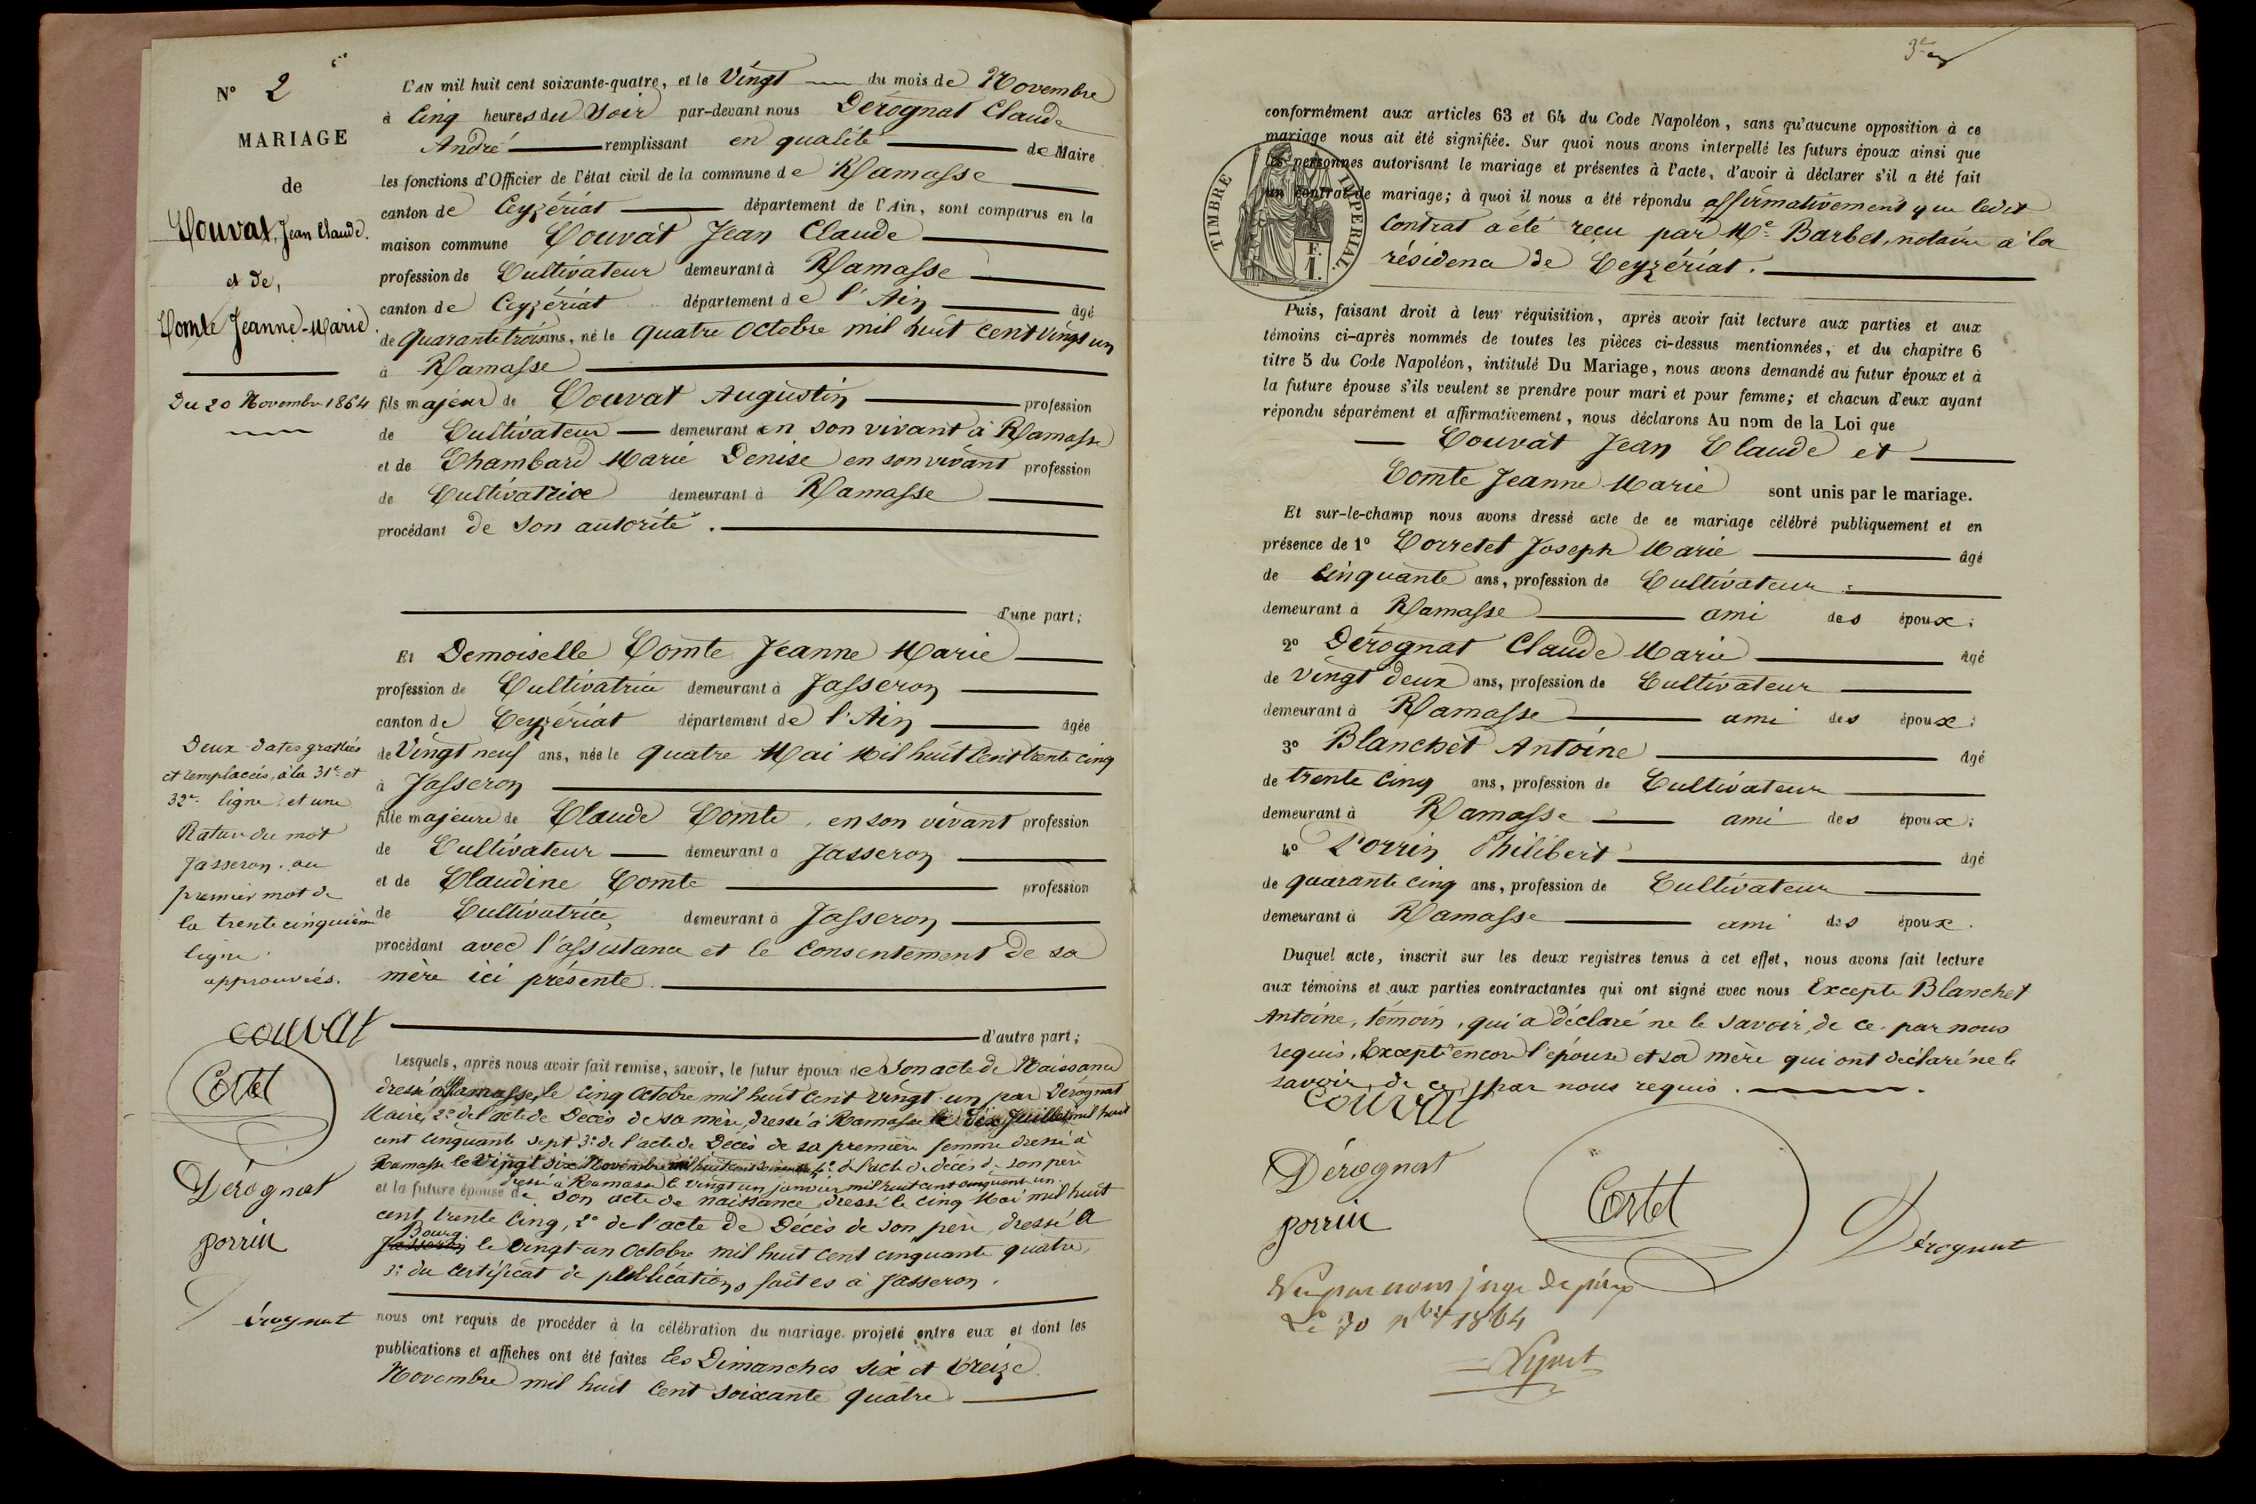 N° 2
MARIAGE
de
Couvat, Jean Claude.
et de,
Comte Jeanne-Marie
Du 20 Novembre 1864
L'AN mil huit cent soixante-quatre, et le Vingt du mois de Novembre
à Cinq heures du Soir par-devant nous Dérognat Claude
André remplissant en qualité de Maire
les fonctions d'Officier de l'état civil de la commune de Ramasse
canton de Ceyzériat département de l'Ain, sont comparus en la
maison commune Couvat Jean Claude
profession de Cultivateur demeurant à Ramasse
canton de Ceyzériat département de l'Ain âgé
de quarante trois ans, né le quatre Octobre mil huit cent vingt un
à Ramasse
fils majeur de Couvat Augustin profession
de Cultivateur demeurant en son vivant à Ramasse
et de Chambard Marie Denise en son vivant profession
de Cultivatrice demeurant à Ramasse
procédant de son autorité.
d'une part;
Et Demoiselle Comte Jeanne Marie
profession de Cultivatrice demeurant à Jasseron
canton de Ceyzériat département de l'Ain âgée
de Vingt neuf ans, née le quatre Mai Mil huit Cent trente cinq
à Jasseron
fille majeure de Claude Comte, en son vivant profession
de Cultivateur demeurant à Jasseron
et de Claudine Comte profession
de Cultivatrice demeurant à Jasseron
procédant avec l'assistance et le Consentement de sa
mère ici présente.
d'autre part;
Lesquels, après nous avoir fait remise, savoir, le futur époux de Son acte de Naissance
dressé à Ramasse, le cinq Octobre mil huit Cent vingt un par Dérognat
Maire, 2° de l'acte de Décès de sa mère, dressé à Ramasse le dix Juillet mil huit
cent cinquante sept 3° de l'acte de Décès de sa première femme dressé à
Ramasse le Vingt six Novembre mil huit cent 4° de l'acte de décès de son père
dressé à Ramasse le vingt un janvier mil huit cent cinquante un
et la future épouse de son acte de naissance dressé le cinq Mai mil huit
cent trente Cinq, 2° de l'acte de Décès de son père, dressé à
Bourg
Jasseron le Vingt-un Octobre mil huit cent cinquante quatre,
3° du Certificat de publications faites à Jasseron.
nous ont requis de procéder à la célébration du mariage projeté entre eux et dont les
publications et affiches ont été faites les Dimanches six et treize
Novembre mil huit Cent soixante quatre
Deux dates grattées
et remplacées, à la 31e et
32e ligne et une
Rature du mot
Jasseron au
premier mot de
la trente cinquième
ligne
approuvées.
couvat
Cortet
Dérognat
porrin
Dérognat
conformément aux articles 63 et 64 du Code Napoléon, sans qu'aucune opposition à ce
mariage nous ait été signifiée. Sur quoi nous avons interpellé les futurs époux ainsi que
les personnes autorisant le mariage et présentes à l'acte, d'avoir à déclarer s'il a été fait
un contrat de mariage; à quoi il nous a été répondu affirmativement que ledit
Contrat a été reçu par Me Barbet, notaire à la
résidence de Ceyzériat.
TIMBRE IMPERIAL.
F.
1.
Puis, faisant droit à leur réquisition, après avoir fait lecture aux parties et aux
témoins ci-après nommés de toutes les pièces ci-dessus mentionnées, et du chapitre 6
titre 5 du Code Napoléon, intitulé Du Mariage, nous avons demandé au futur époux et à
la future épouse s'ils veulent se prendre pour mari et pour femme; et chacun d'eux ayant
répondu séparément et affirmativement, nous déclarons Au nom de la Loi que
Couvat Jean Claude et
Comte Jeanne Marie sont unis par le mariage.
Et sur-le-champ nous avons dressé acte de ce mariage célébré publiquement et en
présence de 1° Corretet Joseph Marie âgé
de Cinquante ans, profession de Cultivateur
demeurant à Ramasse ami des époux;
2° Dérognat Claude Marie âgé
de vingt deux ans, profession de Cultivateur
demeurant à Ramasse ami des époux;
3° Blanchet Antoine âgé
de trente Cinq ans, profession de Cultivateur
demeurant à Ramasse ami des époux;
4° Porrin Philibert âgé
de quarante Cinq ans, profession de Cultivateur
demeurant à Ramasse ami des époux.
Duquel acte, inscrit sur les deux registres tenus à cet effet, nous avons fait lecture
aux témoins et aux parties contractantes qui ont signé avec nous Excepté Blanchet
Antoine, témoin, qui a déclaré ne le savoir, de ce par nous
requis, Excepté encore l'épouse et sa mère qui ont déclaré ne le
savoir de ce par nous requis.
couvat
Dérognat
Cortet
Dérognat
porrin
Vu par nous juge de paix
Le 30 9bre 1864